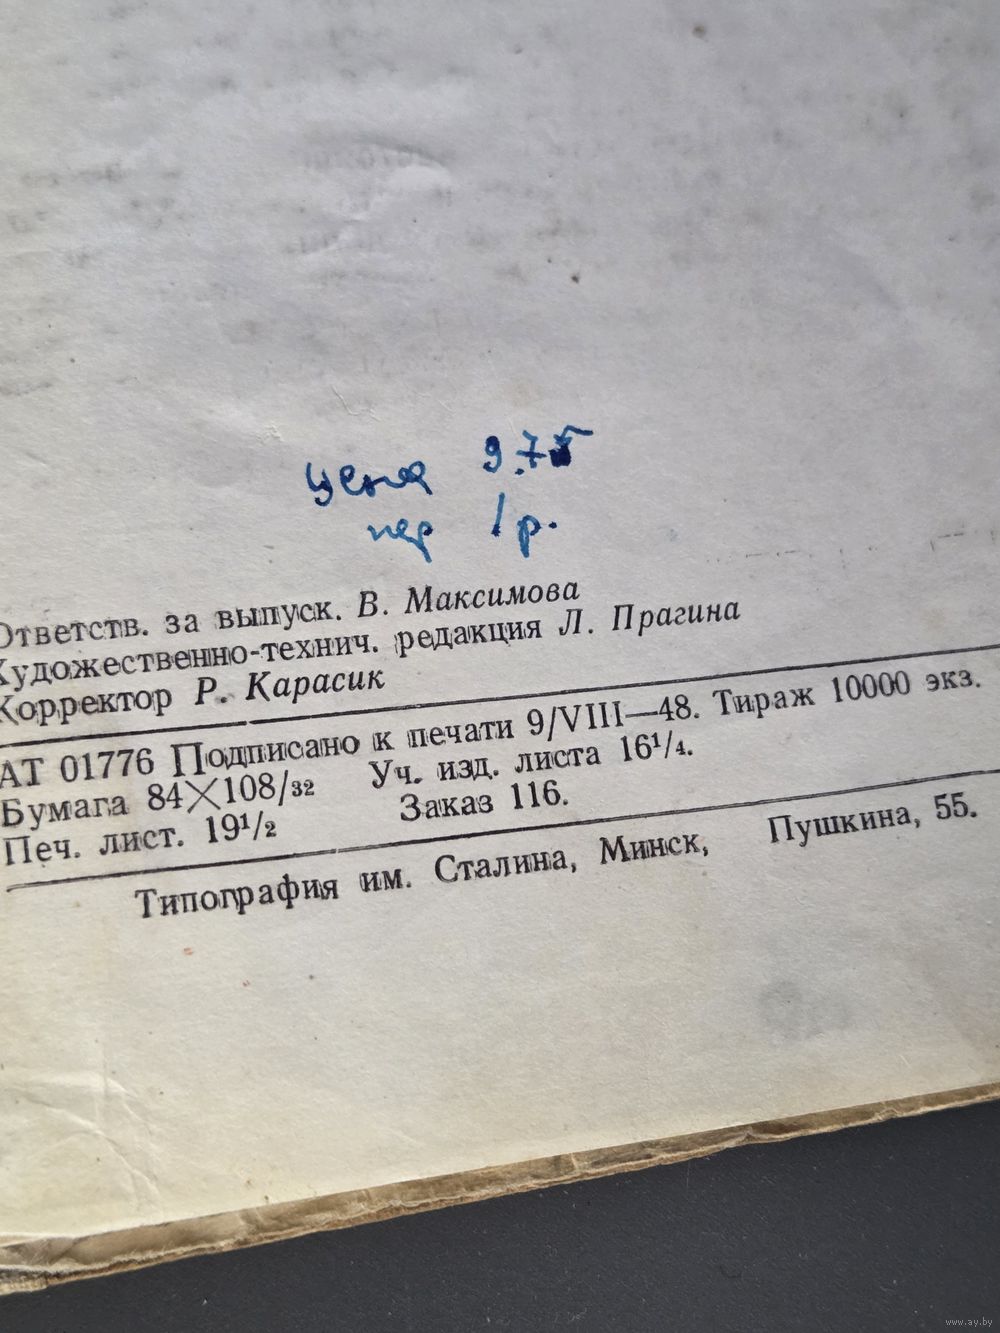 цена 9.75
пер 1 р.
Ответств. за выпуск. В. Максимова
Художественно-технич. редакция Л. Прагина
Корректор Р. Карасик
АТ 01776 Подписано к печати 9/VIII—48. Тираж 10000 экз.
Бумага 84×108/32 Уч. изд. листа 16¹/₄.
Печ. лист. 19¹/₂ Заказ 116.
Типография им. Сталина, Минск, Пушкина, 55.
www.ay.by